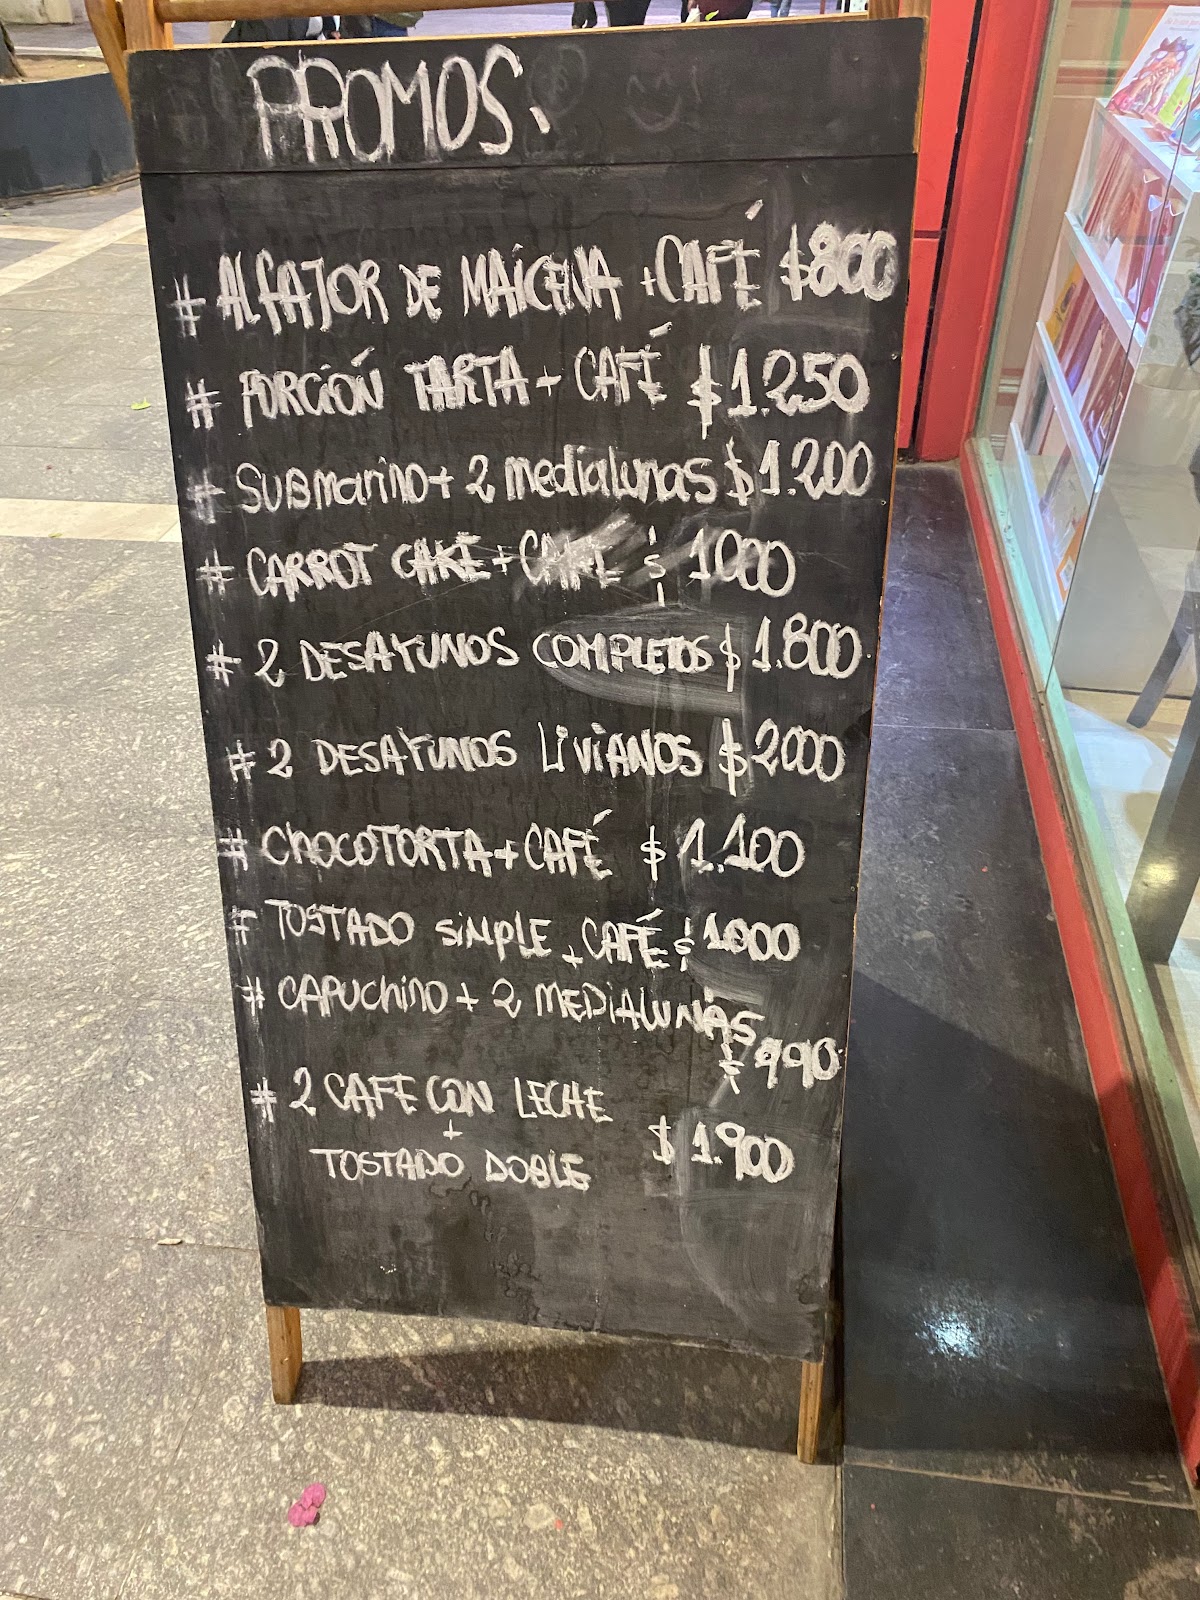 PROMOS.
# ALFAJOR DE MAICENA + CAFÉ $800
# PORCIÓN TARTA + CAFÉ $1.250
# SUBmarino + 2 medialunas $1.200
# CARROT CAKE + CAFE $ 1000
# 2 DESAYUNOS COMPLETOS $1.800
# 2 DESAYUNOS LIVIANOS $2000
# CHOCOTORTA + CAFÉ $ 1.100
# TOSTADO SIMPLE + CAFÉ $ 1.000
# CAPUCHINO + 2 MEDIALUNAS
$ 990
# 2 CAFE CON LECHE
+
TOSTADO DOBLE $ 1.900